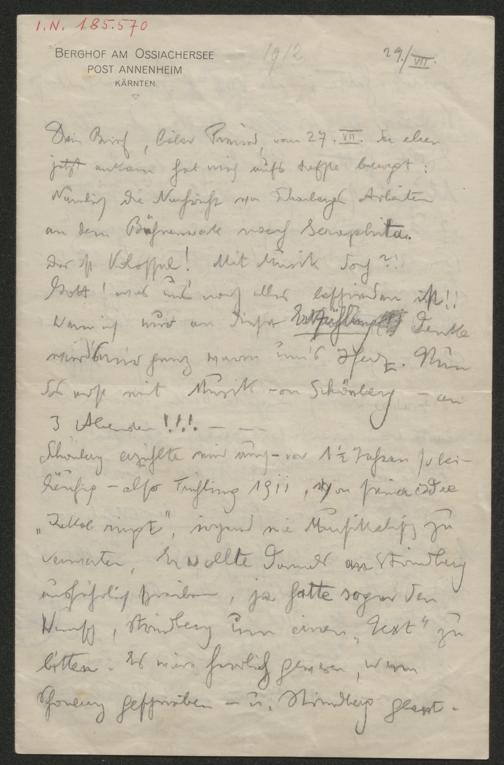 I.N. 185.570
BERGHOF AM OSSIACHERSEE
POST ANNENHEIM
KÄRNTEN.
1912
29./VII.
Dein Brief, lieber Freund, vom 27. VII. der eben
jetzt ankam hat mich aufs tiefste bewegt:
Nämlich die Nachricht von Schönbergs Arbeiten
an dem Bühnenwerk nach Seraphita.
Das ist Mit Musik doch?!
Gott! was uns noch alles ist!!
Wenn ich nur an dieses denke
wird mir ganz warm um's Herz. Nun
das noch mit Musik von Schönberg – an
3 Abenden!!!. – –
Schönberg erzählte mir vor 1½ Jahren
– also Frühling 1911, von seiner Idee
"Jakob ringt", irgend wie musikalisch zu
verwerten. Er wollte damals an Strindberg
ausführlich schreiben, ja hatte sogar den
Wunsch, Strindberg um einen "Text" zu
bitten. Es wäre herrlich gewesen, wenn
Schönberg geschrieben – u. Strindberg